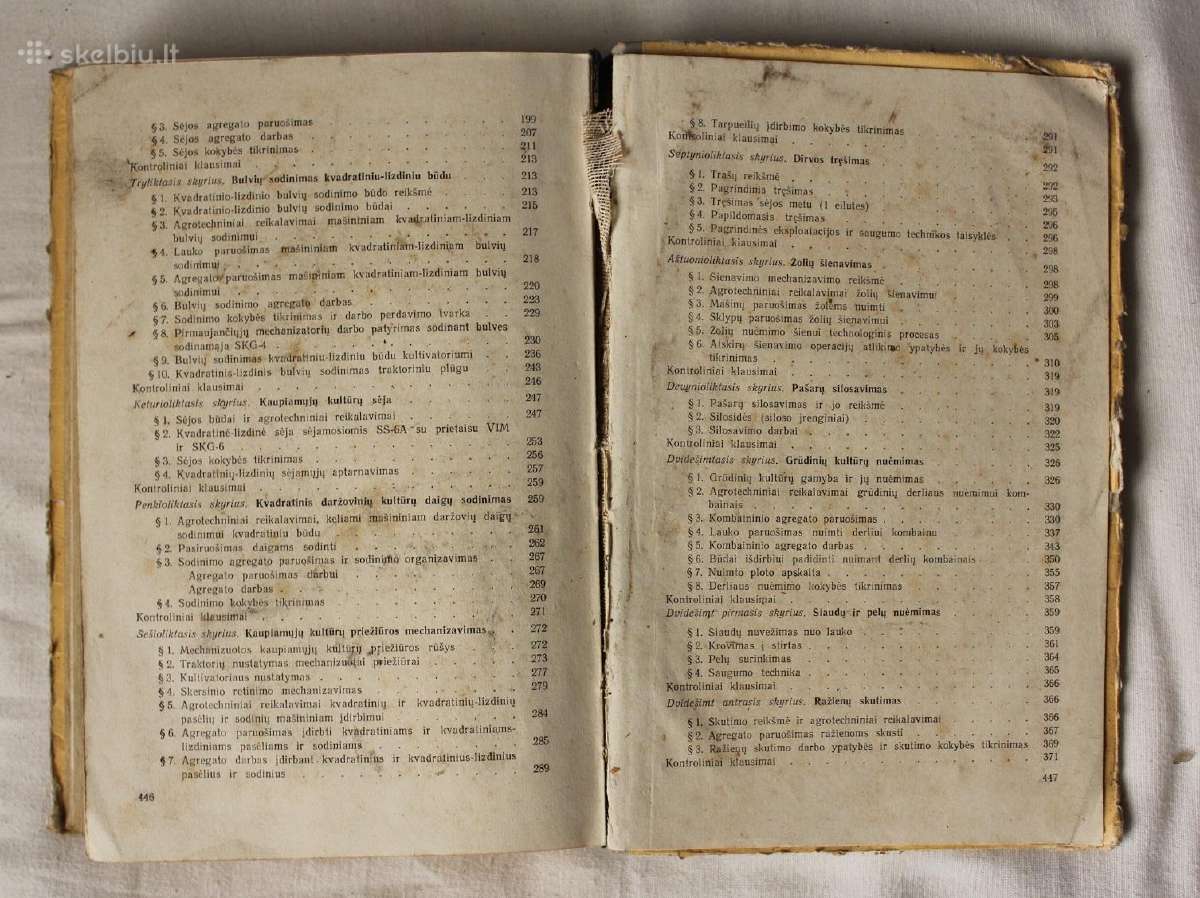 skelbiu.lt
§ 3. Sėjos agregato paruošimas 199
§ 4. Sėjos agregato darbas 207
§ 5. Sėjos kokybės tikrinimas 211
Kontroliniai klausimai 213
Tryliktasis skyrius. Bulvių sodinimas kvadratiniu-lizdiniu būdu 213
§ 1. Kvadratinio-lizdinio bulvių sodinimo būdo reikšmė 213
§ 2. Kvadratinio-lizdinio bulvių sodinimo būdai 215
§ 3. Agrotechniniai reikalavimai mašininiam kvadratiniam-lizdiniam
bulvių sodinimui 217
§ 4. Lauko paruošimas mašininiam kvadratiniam-lizdiniam bulvių
sodinimui 218
§ 5. Agregato paruošimas mašininiam kvadratiniam-lizdiniam bulvių
sodinimui 220
§ 6. Bulvių sodinimo agregato darbas 223
§ 7. Sodinimo kokybės tikrinimas ir darbo perdavimo tvarka 229
§ 8. Pirmaujančiųjų mechanizatorių darbo patyrimas sodinant bulves
sodinamąja SKG-4 230
§ 9. Bulvių sodinimas kvadratiniu-lizdiniu būdu kultivatoriumi 236
§ 10. Kvadratinis-lizdinis bulvių sodinimas traktoriniu plūgu 243
Kontroliniai klausimai 246
Keturioliktasis skyrius. Kaupiamųjų kultūrų sėja 247
§ 1. Sėjos būdai ir agrotechniniai reikalavimai 247
§ 2. Kvadratinė-lizdinė sėja sėjamosiomis SS-6A su prietaisu VIM
ir SKG-6 253
§ 3. Sėjos kokybės tikrinimas 256
§ 4. Kvadratinių-lizdinių sėjamųjų aptarnavimas 257
Kontroliniai klausimai 259
Penkioliktasis skyrius. Kvadratinis daržovinių kultūrų daigų sodinimas 259
§ 1. Agrotechniniai reikalavimai, keliami mašininiam daržovių daigų
sodinimui kvadratiniu būdu 261
§ 2. Pasiruošimas daigams sodinti 262
§ 3. Sodinimo agregato paruošimas ir sodinimo organizavimas 267
Agregato paruošimas darbui 267
Agregato darbas 269
§ 4. Sodinimo kokybės tikrinimas 270
Kontroliniai klausimai 271
Šešioliktasis skyrius. Kaupiamųjų kultūrų priežiūros mechanizavimas 272
§ 1. Mechanizuotos kaupiamųjų kultūrų priežiūros rūšys 272
§ 2. Traktorių nustatymas mechanizuotai priežiūrai 273
§ 3. Kultivatoriaus nustatymas 277
§ 4. Skersinio retinimo mechanizavimas 279
§ 5. Agrotechniniai reikalavimai kvadratinių ir kvadratinių-lizdinių
pasėlių ir sodinių mašininiam įdirbimui 284
§ 6. Agregato paruošimas įdirbti kvadratiniams ir kvadratiniams-
lizdiniams pasėliams ir sodiniams 285
§ 7. Agregato darbas įdirbant kvadratinius ir kvadratinius-lizdinius
pasėlius ir sodinius 289
446
§ 8. Tarpueilių įdirbimo kokybės tikrinimas 291
Kontroliniai klausimai 291
Septynioliktasis skyrius. Dirvos tręšimas 292
§ 1. Trąšų reikšmė 292
§ 2. Pagrindinis tręšimas 293
§ 3. Tręšimas sėjos metu (į eilutes) 295
§ 4. Papildomasis tręšimas 296
§ 5. Pagrindinės eksploatacijos ir saugumo technikos taisyklės 296
Kontroliniai klausimai 298
Aštuonioliktasis skyrius. Žolių šienavimas 298
§ 1. Šienavimo mechanizavimo reikšmė 298
§ 2. Agrotechniniai reikalavimai žolių šienavimui 299
§ 3. Mašinų paruošimas žolėms nuimti 300
§ 4. Sklypų paruošimas žolių šienavimui 303
§ 5. Žolių nuėmimo šienui technologinis procesas 305
§ 6. Atskirų šienavimo operacijų atlikimo ypatybės ir jų kokybės
tikrinimas 310
Kontroliniai klausimai 319
Devynioliktasis skyrius. Pašarų silosavimas
§ 1. Pašarų silosavimas ir jo reikšmė 319
§ 2. Silosidės (siloso įrenginiai) 320
§ 3. Silosavimo darbai 322
Kontroliniai klausimai 325
Dvidešimtasis skyrius. Grūdinių kultūrų nuėmimas 326
§ 1. Grūdinių kultūrų gamyba ir jų nuėmimas 326
§ 2. Agrotechniniai reikalavimai grūdinių derliaus nuėmimui kom-
bainais 330
§ 3. Kombaininio agregato paruošimas 330
§ 4. Lauko paruošimas nuimti derlių kombainu 337
§ 5. Kombaininio agregato darbas 343
§ 6. Būdai išdirbiui padidinti nuimant derlių kombainais 350
§ 7. Nuimto ploto apskaita 355
§ 8. Derliaus nuėmimo kokybės tikrinimas 357
Kontroliniai klausimai 358
Dvidešimt pirmasis skyrius. Šiaudų ir pelų nuėmimas 359
§ 1. Šiaudų nuvežimas nuo lauko 359
§ 2. Krovimas į stirtas 361
§ 3. Pelų surinkimas 364
§ 4. Saugumo technika 365
Kontroliniai klausimai 366
Dvidešimt antrasis skyrius. Ražienų skutimas 366
§ 1. Skutimo reikšmė ir agrotechniniai reikalavimai 366
§ 2. Agregato paruošimas ražienoms skusti 367
§ 3. Ražienų skutimo darbo ypatybės ir skutimo kokybės tikrinimas 369
Kontroliniai klausimai 371
447